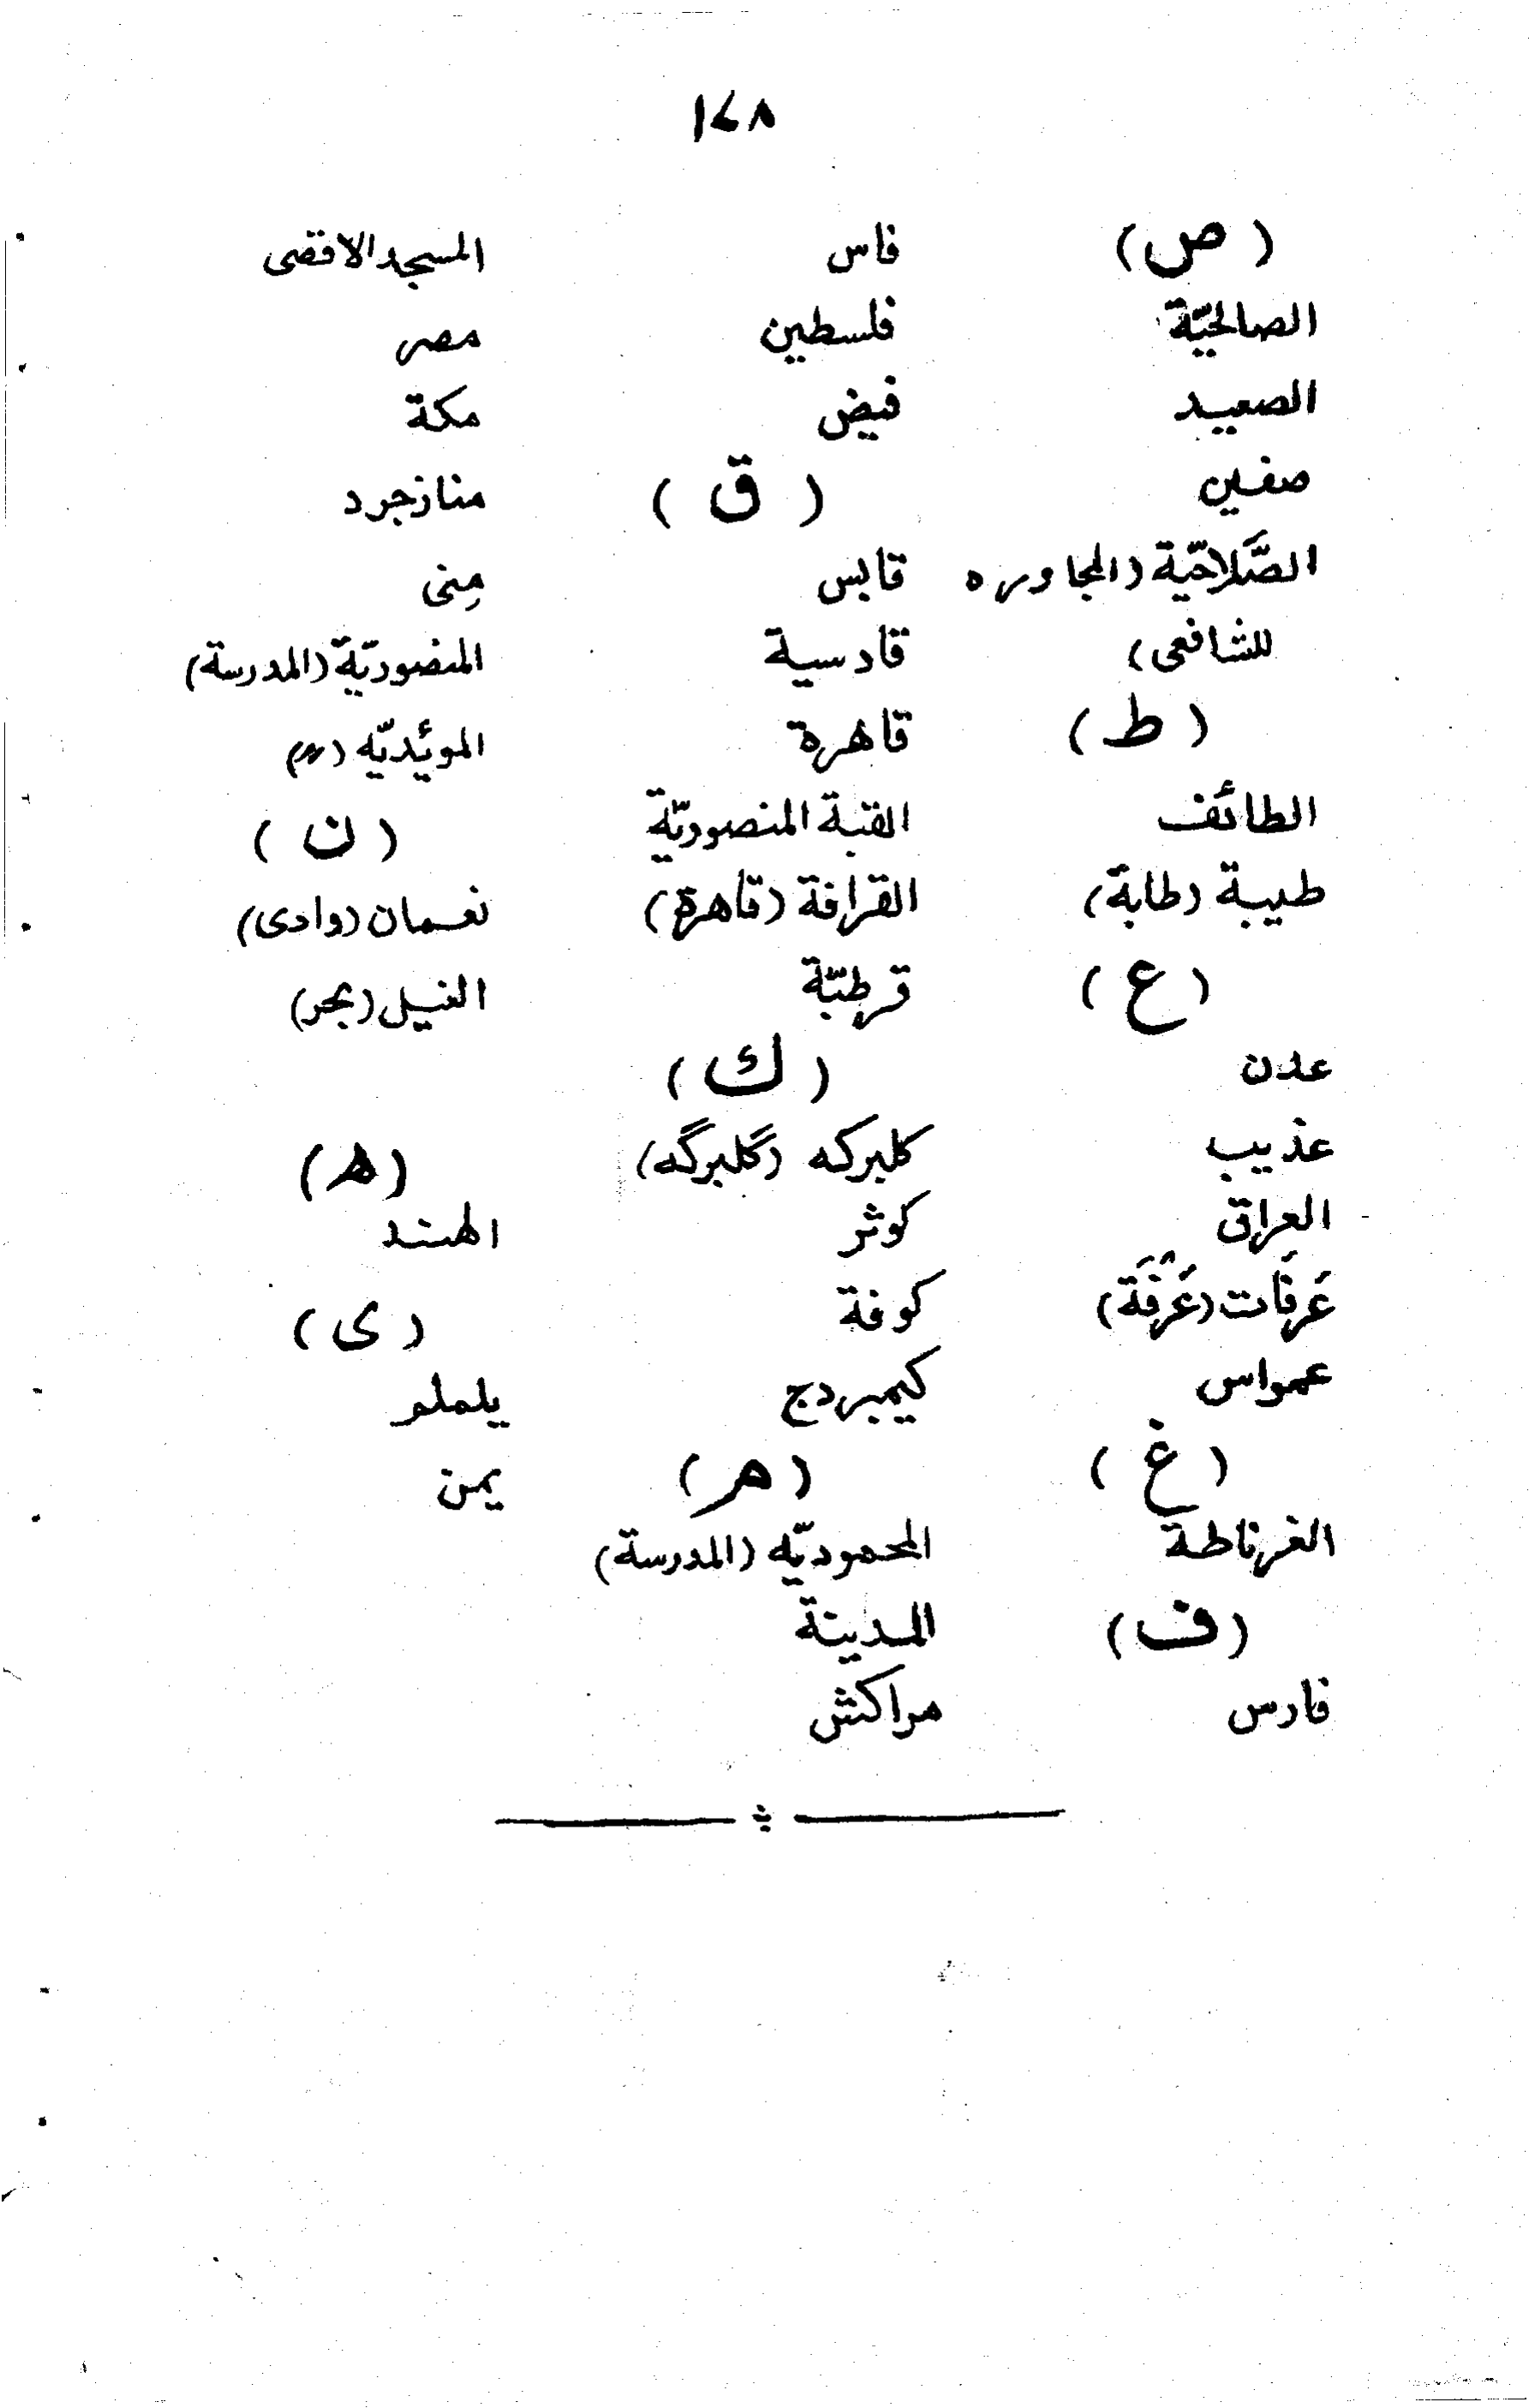 ١٤٨
(ص)
الصالحيّة
الصعيد
صفين
الصَّلاحيّة (المجاوره
للشافعی)
(ط)
الطائف
طيبة (طابة)
(ع)
عدن
عذيب
العراق
عَرفَات (عَرْفَة)
عمواس
(غ)
الغرناطة
(ف)
فارس
فاس
فلسطين
فيض
(ق)
قابس
قادسية
قاهرة
القبة المنصوريّة
القرافة (قاهرة)
قرطبّة
(ك)
كلبركه (گلبرگه)
كوثر
كوفة
كيمبردج
(م)
المحموديّه (المدرسة)
المدينة
مراكش
المسجد الاقصی
مصر
مكة
منازجرد
مِنی
المنصوريّة (المدرسة)
الموئديّه (〃)
(ن)
نعمان (وادی)
النيل (بحر)
(ھ)
الهند
(ی)
يلملم
يمن